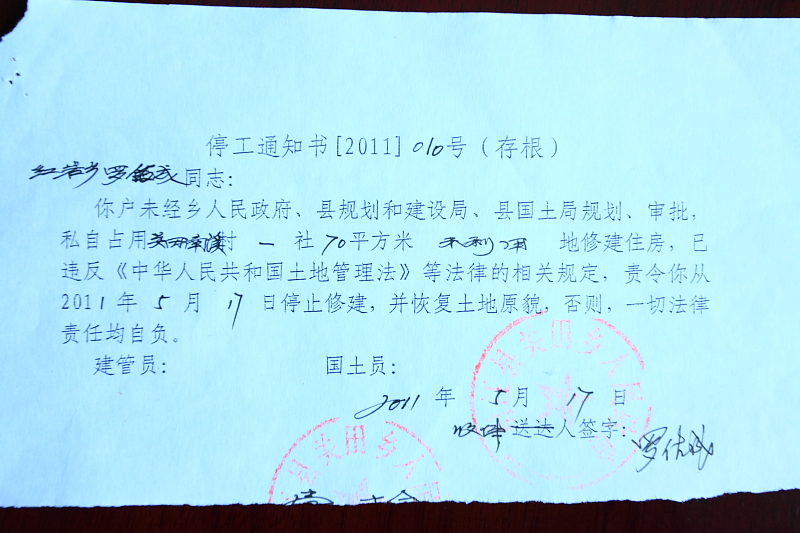 停工通知书[2011]010号(存根)
罗 同志:
你户未经乡人民政府、县规划和建设局、县国土局规划、审批,
私自占用 村 一 社70平方米 地修建住房,已
违反《中华人民共和国土地管理法》等法律的相关规定,责令你从
2011年 5 月 17 日停止修建,并恢复土地原貌,否则,一切法律
责任均自负。
建管员: 国土员:
2011 年 5月 17日
送达人签字:
县尖田乡人民
县尖田乡人